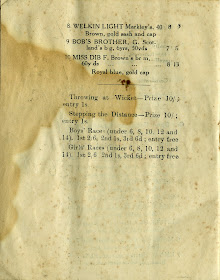 8 WELKIN LIGHT Markley's, 40 8 9
Brown, gold sash and cap
9 BOB'S BROTHER, G. Scot-
land's b g, 6yrs, 50yds 7 5
10 MISS DIB F. Brown's br m,
60y ds 8 13
Royal blue, gold cap
Throwing at Wicket—Prize 10/;
entry 1s
Stepping the Distance—Prize 10/;
entry 1s
Boys' Races (under 6, 8, 10, 12 and
14). 1st 2.6, 2nd 1s, 3rd 6d; entry free
Girls' Races (under 6, 8, 10, 12 and
14). 1st 2.6 2nd 1s, 3rd 6d; entry free